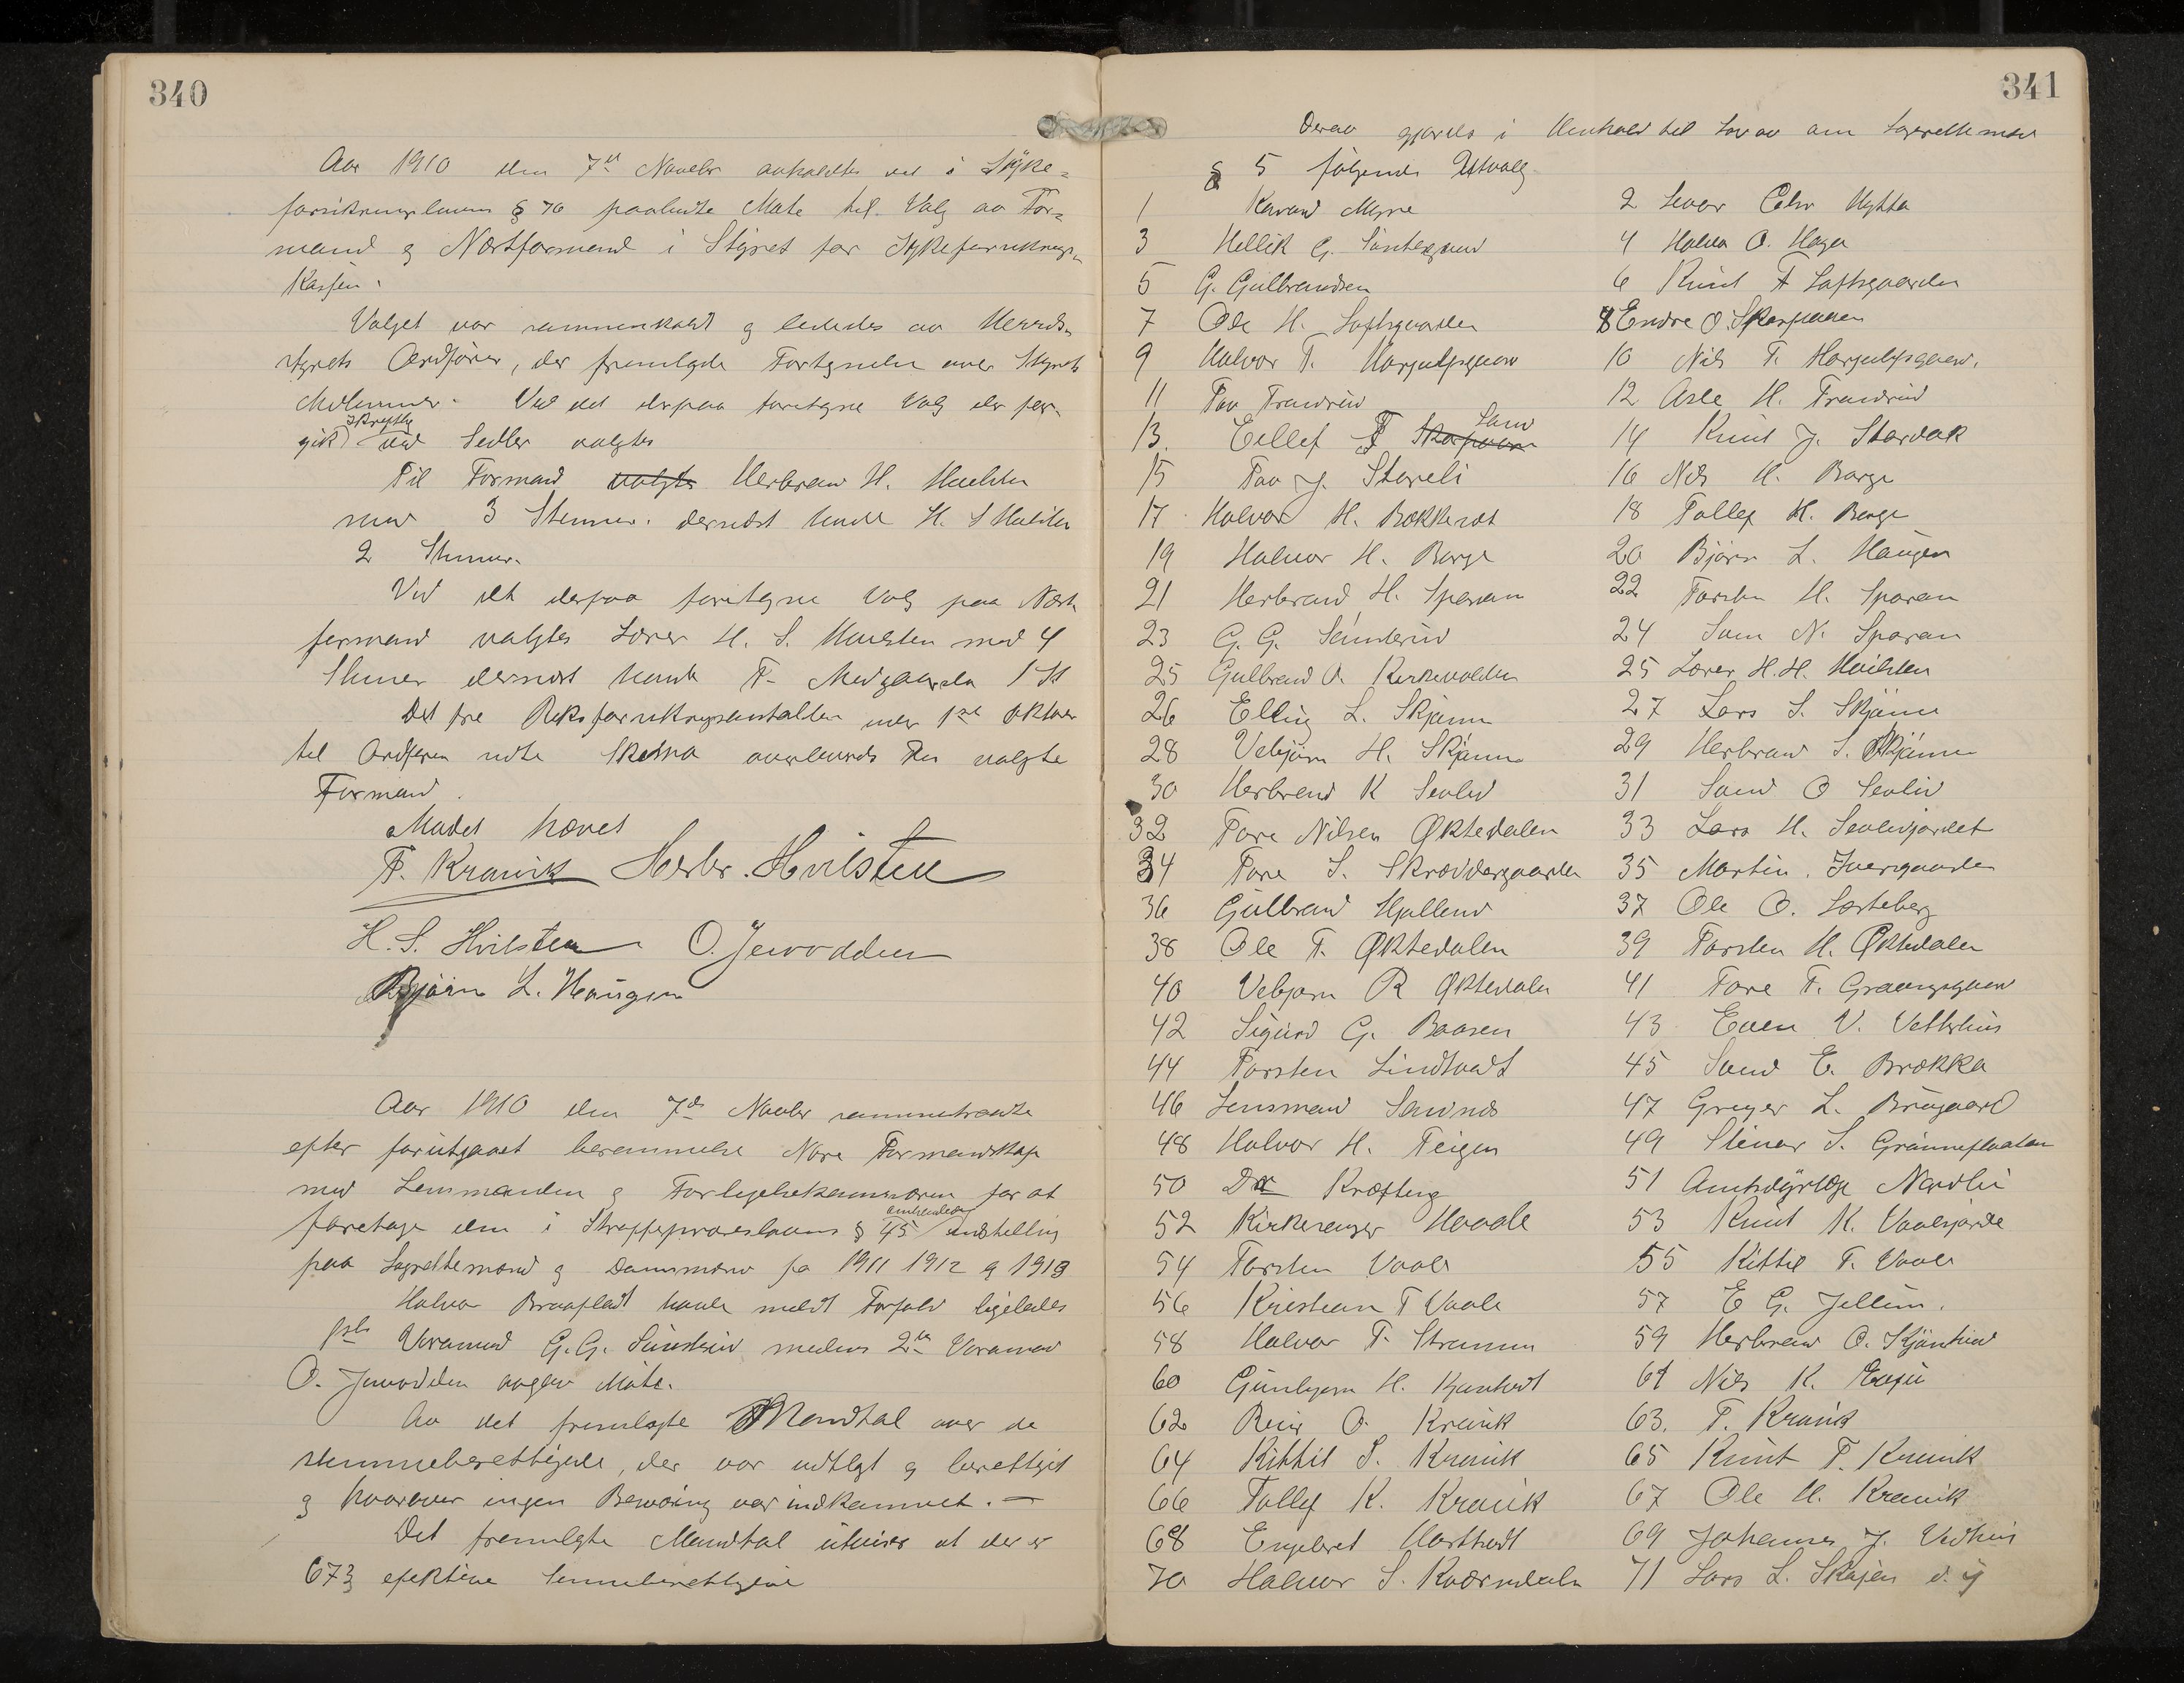 340
Aar 1910 den 7de Novebr avholdtes det i Syke=
forsikringslovens § 76 paabudte Møte til Valg av For=
mand og Næstformand i Styret for Sykeforsikrings
Kassen.
Valget var sammenkaldt og lededes av Herreds
styrets Ordfører, der fremlagde Fortegnelse over Styrets
Medlemmer. Ved det derpaa foretagne Valg der for
gik Skriftlig ved Sedler valgtes
Til Formand valgtes Herbrand H. Hvilsten
med 3 Stemmer. dernæst havde H. S Hvilsten
2 Stemmer.
Ved det derpaa foretagne Valg paa Næst
formand valgtes Lærer H. S. Hvilsten med 4
Stemmer dernæst havde T. Medgaarden 1 St
Det fra Riksforsikringsanstalten under 1ste Oktober
til Ordføren sendte Skema overleveredes den valgte
Formand.
Mødet hævet
T. Kravik Herbr. Hvilsten
H. S. Hvilsten O. Jevodden
Bjørn L. Haugen
Aar 1910 den 7de Novbr sammentraadte
efter forutgaaet berammelse Nore Formandskap
med Lensmanden og Forligelseskommissæren for at
foretage den i Straffeproceslovens § 45 omhandlede indstilling
paa Lagrettemænd og Domsmænd for 1911 1912 og 1913
Halvor Braafladt havde meldt Forfald ligeledes
1ste Varamand G. G. Sønsterud medens 2den Varamand
O. Jevodden avgav Møte.
Av det fremlagte Mandtal over de
stemmeberettigede, der var utlagt og berettiget
og hvorover ingen Bemerkning var indkommet. —
Det fremlagte Mandtal utviser at der er
673 efektive Stemmeberettigede
341
Derav gjordes i Henhold til Lov av om Lagrettemænd
§ 5 følgende Utvalg
1 Myrre 2 Hytta
3 Hellik G. 4 Halvor O. Haga
5 G. Gulbrandsen 6 Knut T Loftsgaarden
7 Ole H. Loftsgaarden 8 Endre O.
9 Halvor T. 10 Nils T.
11 Tov Frandrud 12 Asle H. Frandrud
13. Eilef T Sand 14 Knut J. Stordok
15 Tov J. Staveli 16 Nils H. Borge
17 Halvor H. 18 Tollef H. Borge
19 Halvor H. Borge 20 Bjørn L. Haugen
21 Herbrand H. Sporan 22 Torsten H. Sporan
23 G. G. Sønsterud 24 N. Sporan
25 Gulbrand O. Kirkevolden 25 Lærer H. H. Hvilsten
26 Elling L. Skjønne 27 Lars S. Skjønne
28 Vebjørn H. Skjønne 29 Herbrand S. Skjønne
30 Herbrand K Sevlid 31 O Sevlid
32 Tore Nilsen Øktedalen 33 Lars H. Sevlidjordet
34 Tore S. Skræddergaarden 35 Martin. Ivergaarden
36 Gulbrand 37 Ole O. Lerteberg
38 Ole T. Øktedalen 39 Torsten H. Øktedalen
40 Vebjørn R Øktedalen 41 Tore T.
42 Sigurd G. Baasen 43 Even V. Vetterhus
44 Torsten Lindtvedt 45 E. Brækka
46 Lensmand 47 Greger L. Brugaard
48 Halvor H. Teigen 49 Steinar S. Grønneflaaten
50 Dr Kræfting 51 Amtsdyrlæge Nordli
52 Kirkesanger Haade 53 Knut K. Vaalsjorde
54 Torsten Vaale 55 Kittil T. Vaale
56 Kristian T Vaale 57 E G. Jellum.
58 Halvor T. Strømmen 59 Herbrand O. Kjøntved
60 Gunbjørn H. Kjøntvedt 61 Nils K.
62 O. Kravik 63. T. Kravik
64 Kittil S. Kravik 65 Knut T. Kravik
66 Tollef K. Kravik 67 Ole H. Kravik
68 Engebret Hartvedt 69 Johannes J. Vedhus
70 Halvor S. Kværndalen 71 Lars L. Skajem d. y